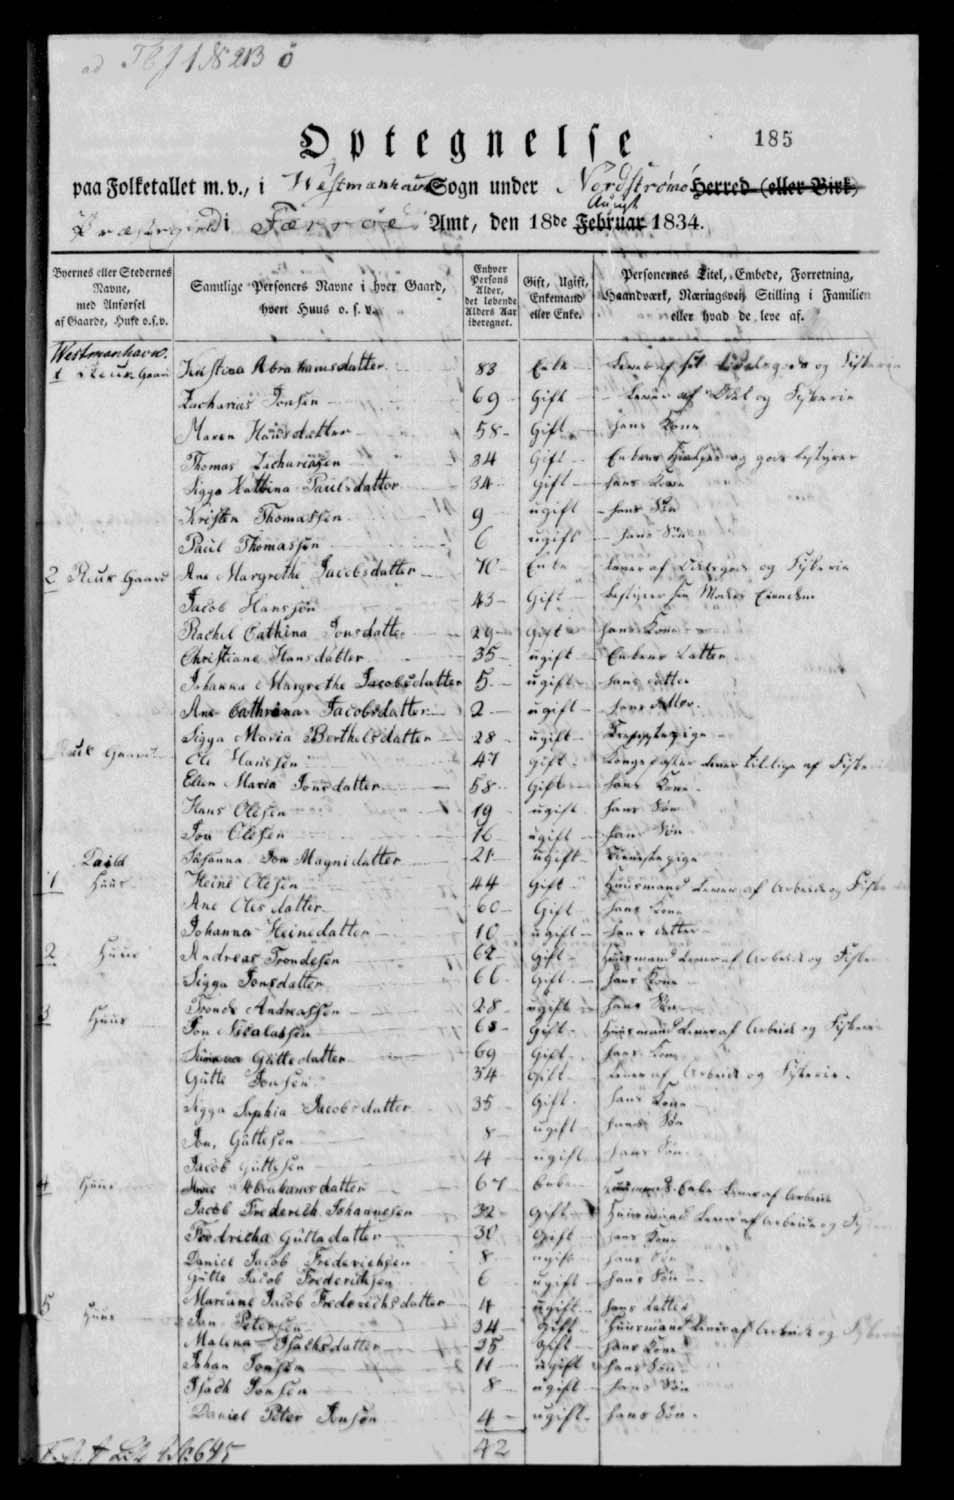 ad TB J 1 N 213 ö
Optegnelse
185
paa Folketallet m. v., i Westmanhavn Sogn under Nordstrømø Herred (eller Birk)
i Færröe Amt, den 18de Februar August 1834.
Byernes eller Stedernes Navne, med Anførsel af Gaarde, Huse o. s. v.
Samtlige Personers Navne i hver Gaard, hvert Huus o. s. v.
Enhver Persons Alder, det løbende Alders Aar iberegnet.
Gift, Ugift, Enkemand eller Enke.
Personernes Titel, Embede, Forretning, Haandværk, Næringsvei, Stilling i Familien eller hvad de leve af.
Westmanhavn.
1 Gaard Kristina Abrahamsdatter 83 Enke og Fiskerie
Zacharias Jonsen 69 Gift Lever af Odel og Fiskerie
Maren Hansdatter 58 Gift hans Kone
Thomas Zachariasen 34 Gift Enkens og gods bestyrer
Sigga Kattrina Paulsdatter 34 gift hans Kone
Kristen Thomassen 9 ugift hans Søn
Paul Thomassen 6 ugift hans Søn
2 Gaard Ane Margrethe Jacobsdatter 70 Enke Lever af og Fiskerie
Jacob Hanssen 43 Gift bestyrer sin Moders Eiendom
Rachel Cathina Jonsdatter 29 Gift hans Kone
Christiane Hansdatter 35 ugift Enkens Datter
Johanna Margrethe Jacobsdatter 5 ugift hans datter
Ane Cathrina Jacobsdatter 2 ugift hans datter
Sigga Maria Berthelsdatter 28 ugift Tienestepige
Gaard Ole Hansen 47 gift Kongsfæster lever tillige af Fiskerie
Ellen Maria Jonsdatter 58 Gift hans Kone
Hans Olesen 19 ugift hans Søn
Jon Olesen 16 ugift hans Søn
Susanna Jon Magnidatter 21 ugift Tienestepige
1 Huus Heine Olesen 44 Gift Huusmand Lever af Arbeide og Fiske
Ane Olesdatter 60 Gift hans Kone
Johanna Heinedatter 10 ugift hans datter
2 Huus Andreas Trondesen 62 Gift Huusmand Lever af Arbeide og Fiske
Sigga Jonsdatter 66 Gift hans Kone
Tronde Andreassen 28 ugift hans Søn
3 Huus Jon Nicolassen 68 Gift Huusmand Lever af Arbeide og Fiskerie
Guttedatter 69 Gift hans Kone
Gutte Jonsen 34 Gift Lever af Arbeide og Fiskerie
Sigga Sophia Jacobsdatter 35 Gift hans Kone
Jon Guttesen 8 ugift hans Søn
Jacob Guttesen 4 ugift hans Søn
4 Huus Abrahamsdatter 67 Enke Huusmands Enke Lever af Arbeide
Jacob Frederich Johannesen 32 Gift Huusmand Lever af Arbeide og
Fredricha Guttadatter 30 Gift hans Kone
Daniel Jacob Frederichsen 8 ugift hans Søn
Gutte Jacob Frederichsen 6 ugift hans Søn
Mariane Jacob Frederichsdatter 4 ugift hans datter
5 Huus Jan Petersen 34 Gift Huusmand Lever af Arbeide og
Malena Isachsdatter 25 Gift hans Kone
Johan Jonsen 11 ugift hans Søn
Isach Jonsen 8 ugift hans Søn
Daniel Peter Jonsen 4 ugift hans Søn
42
645